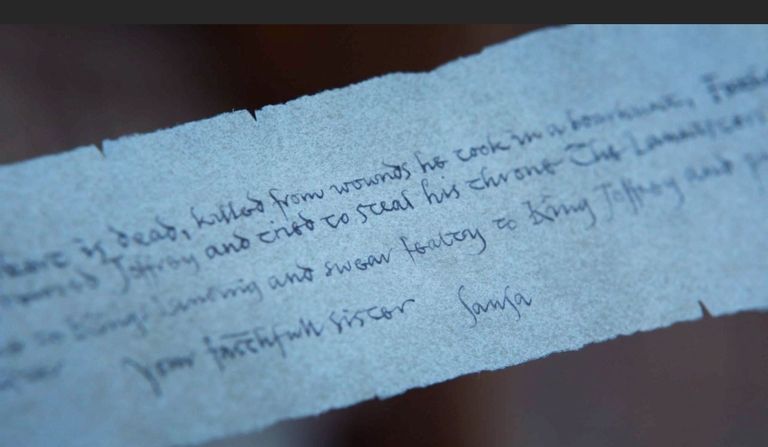 is dead, killed from wounds he took in a boarhunt, Father
Joffrey and tried to steal his throne The Lannisters
to Kings Landing and swear fealty to King Joffrey and
your faithfull sister Sansa